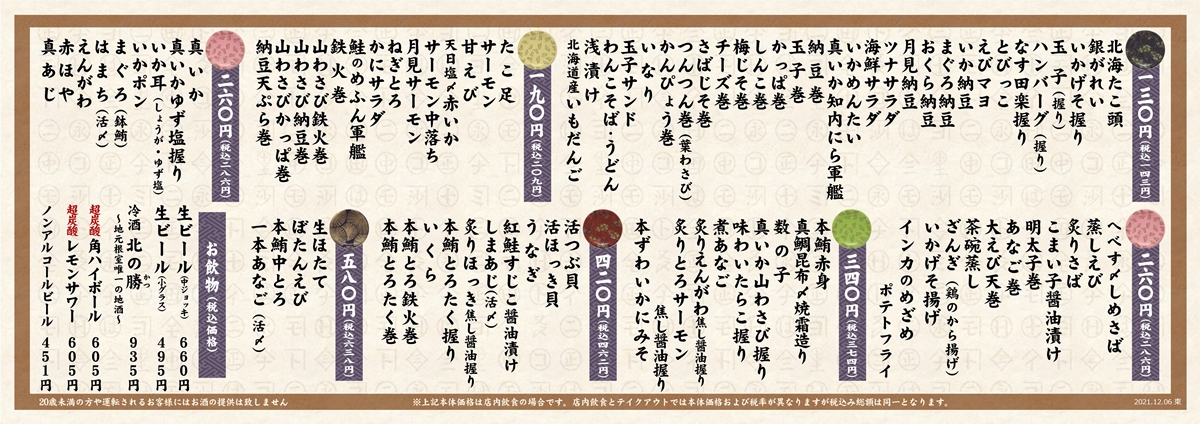 一三〇円（税込一四三円）
北海たこ頭
銀がれい
いかげそ握り
玉子（握り）
ハンバーグ（握り）
なす田楽握り
とびっこ
えびマヨ
いか納豆
まぐろ納豆
おくら納豆
月見納豆
ツナサラダ
海鮮サラダ
いかめんたい
真いか知内にら軍艦
納豆巻
玉子巻
かっぱ巻
しんこ巻
梅じそ巻
チーズ巻
さばじそ巻
つんつん巻（葉わさび）
かんぴょう巻
いなり
玉子サンド
わんこそば・うどん
浅漬け
北海道産いもだんご
一九〇円（税込二〇九円）
たこ足
サーモン
甘えび
天日塩〆赤いか
サーモン中落ち
月見サーモン
ねぎとろ
かにサラダ
鮭のめふん軍艦
鉄火巻
山わさび鉄火巻
山わさび納豆巻
山わさびかっぱ巻
納豆天ぷら巻
二六〇円（税込二八六円）
真いか
真いかゆず塩握り
いか耳（しょうが・ゆず塩）
いかポン
まぐろ（鉢鮪）
はまち（活〆）
えんがわ
赤ほや
真あじ
二六〇円（税込二八六円）
へべす〆しめさば
蒸しえび
炙りさば
こまい子醤油漬け
明太子巻
あなご巻
大えび天巻
茶碗蒸し
ざんぎ（鶏のから揚げ）
いかげそ揚げ
インカのめざめ
ポテトフライ
三四〇円（税込三七四円）
本鮪赤身
真鯛昆布〆焼霜造り
数の子
真いか山わさび握り
味わいたらこ握り
煮あなご
炙りえんがわ焦し醤油握り
炙りとろサーモン
焦し醤油握り
本ずわいかにみそ
四二〇円（税込四六二円）
活つぶ貝
活ほっき貝
うなぎ
紅鮭すじこ醤油漬け
しまあじ（活〆）
炙りほっき焦し醤油握り
本鮪とろたく握り
いくら
本鮪とろ鉄火巻
本鮪とろたく巻
五八〇円（税込六三八円）
生ほたて
ぼたんえび
本鮪中とろ
一本あなご（活〆）
お飲物（税込価格）
生ビール（中ジョッキ） 660円
生ビール（小グラス） 495円
冷酒 北の勝 かつ 935円
〜地元根室唯一の地酒〜
超炭酸 角ハイボール 605円
超炭酸 レモンサワー 605円
ノンアルコールビール 451円
20歳未満の方や運転されるお客様にはお酒の提供は致しません
※上記本体価格は店内飲食の場合です。店内飲食とテイクアウトでは本体価格および税率が異なりますが税込み総額は同一となります。
2021.12.06 東